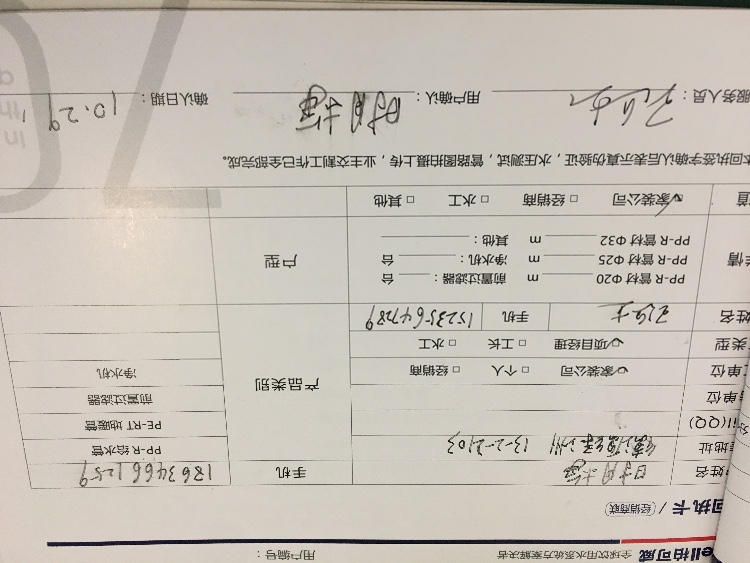 ell柏可威 全球饮用水系统方案解决者 用户编号：
回执卡 / 经销商联
姓名 手机 18634661259
地址 13-2-2103 PP-R 给水管
il(QQ) PE-RT 地暖管
单位 产品类别 前置过滤器
单位 家装公司 □ 个人 □ 经销商 净水机
类型 项目经理 □ 工长 □ 水工
姓名 手机 15235647289
PP-R 管材 Φ20 m 前置过滤器： 台 户型
PP-R 管材 Φ25 m 净水机： 台
PP-R 管材 Φ32 m 其他：
道 家装公司 □ 经销商 □ 水工 □ 其他
本回执签字确认后表示真伪验证，水压测试，管路图拍摄上传，业主交割工作已全部完成。
服务人员： 用户确认： 确认日期： 10.29